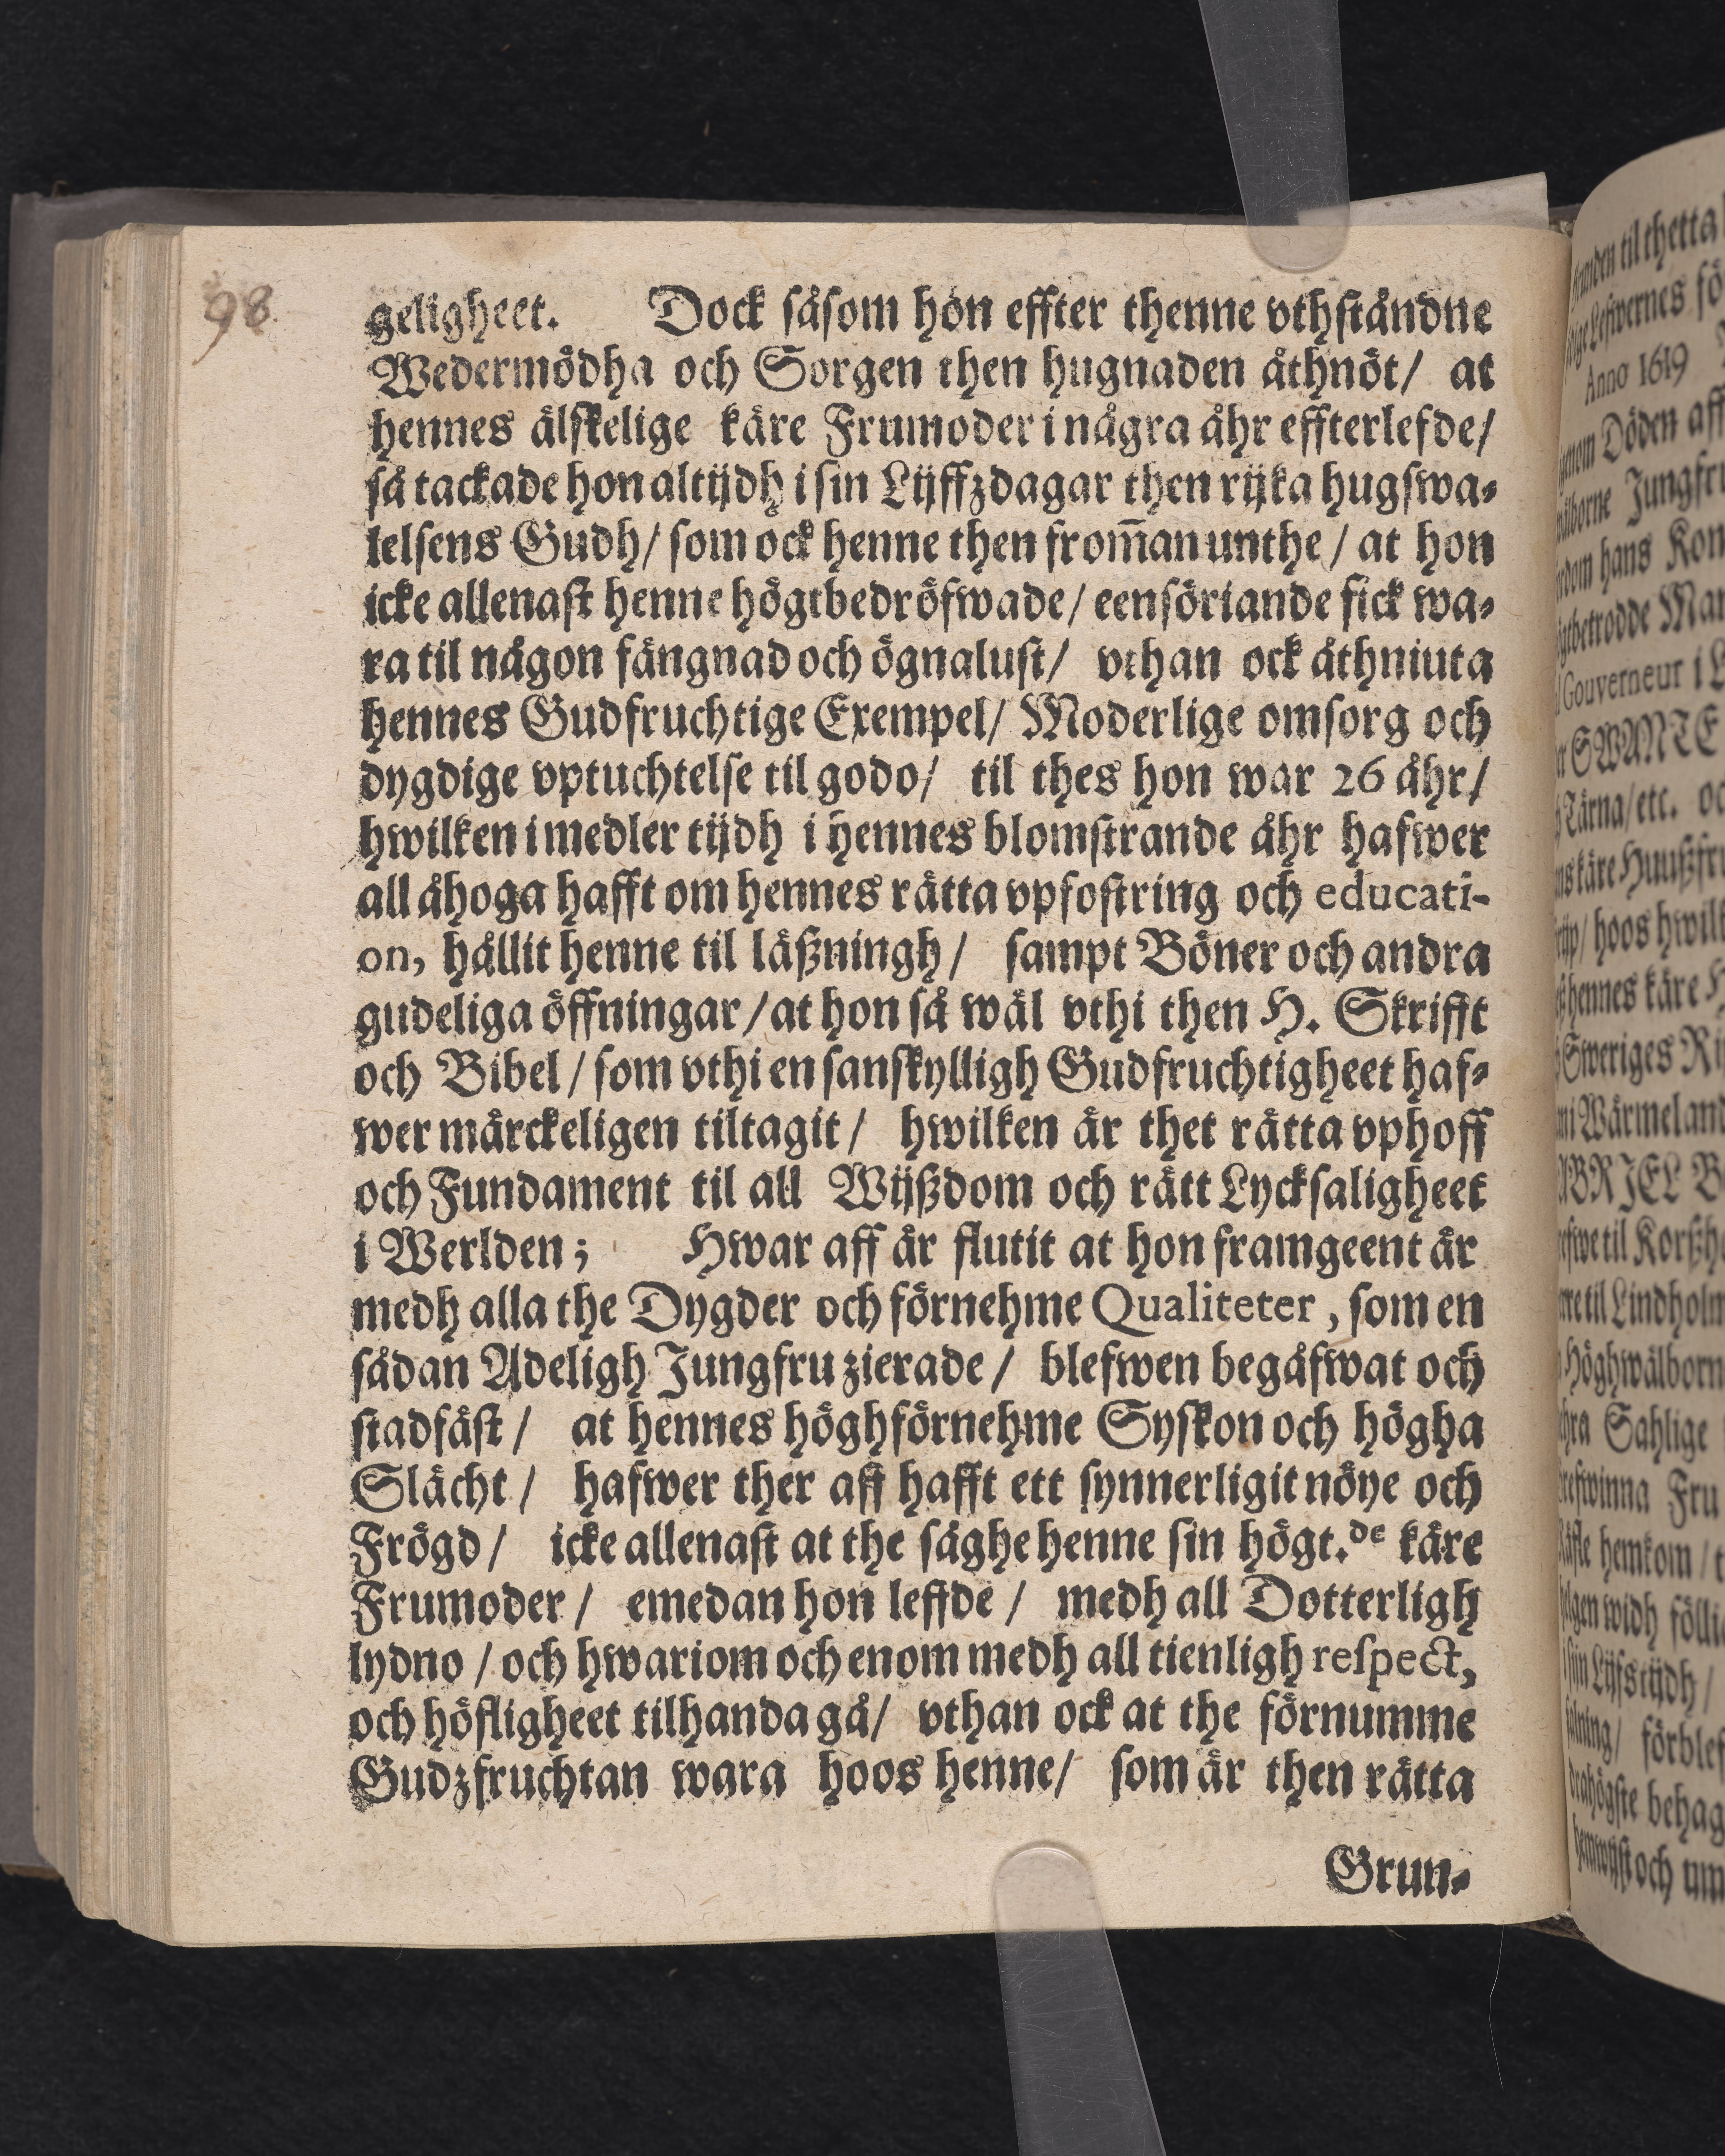 98.
geligheet. Dock såsom hon effter thenne vthståndne
Wedermödha och Sorgen then hugnaden åthnöt/ at
hennes älskelige käre Frumoder i några åhr effterlefde/
så tackade hon altijdh i sin Lijffzdagar then rijka hugswa-
lelsens Gudh/ som ock henne then from̅an unthe/ at hon
icke allenast henne högtbedröfwade/ eensöriande fick wa-
ra til någon fängnad och ögnalust/ vthan ock åthniuta
hennes Gudfruchtige Exempel/ Moderlige omsorg och
dygdige vptuchtelse til godo/ til thes hon war 26 åhr/
hwilken i medler tijdh i hennes blomstrande åhr hafwer
all åhoga hafft om hennes rätta vpfostring och educati-
on, hållit henne til läßningh/ sampt Böner och andra
gudeliga öffningar/ at hon så wäl vthi then H. Skrifft
och Bibel/ som vthi en sanskylligh Gudfruchtigheet haf-
wer märckeligen tiltagit/ hwilken är thet rätta vphoff
och Fundament til all Wijßdom och rätt Lycksaligheet
i Werlden; Hwar aff är flutit at hon framgeent är
medh alla the Dygder och förnehme Qualiteter, som en
sådan Adeligh Jungfru zierade/ blefwen begåfwat och
stadfäst/ at hennes höghförnehme Syskon och högha
Slächt/ hafwer ther aff hafft ett synnerligit nöye och
Frögd/ icke allenast at the såghe henne sin högt.de käre
Frumoder/ emedan hon leffde/ medh all Dotterligh
lydno/ och hwariom och enom medh all tienligh respect,
och höfligheet tilhanda gå/ vthan ock at the förnumme
Gudzfruchtan wara hoos henne/ som är then rätta
Grun-
til thetta
Anno 1619
Döden aff
Jungfru
hans Kon
Gouverneur i
SWANTE
Tärna/ etc.
käre Huußfru
hoos hwilk
hennes käre
Sweriges
Wärmeland
til Lindholm
Höghwälborn
Sahlige
Fru
hemkom/
widh
förblef
behag
och